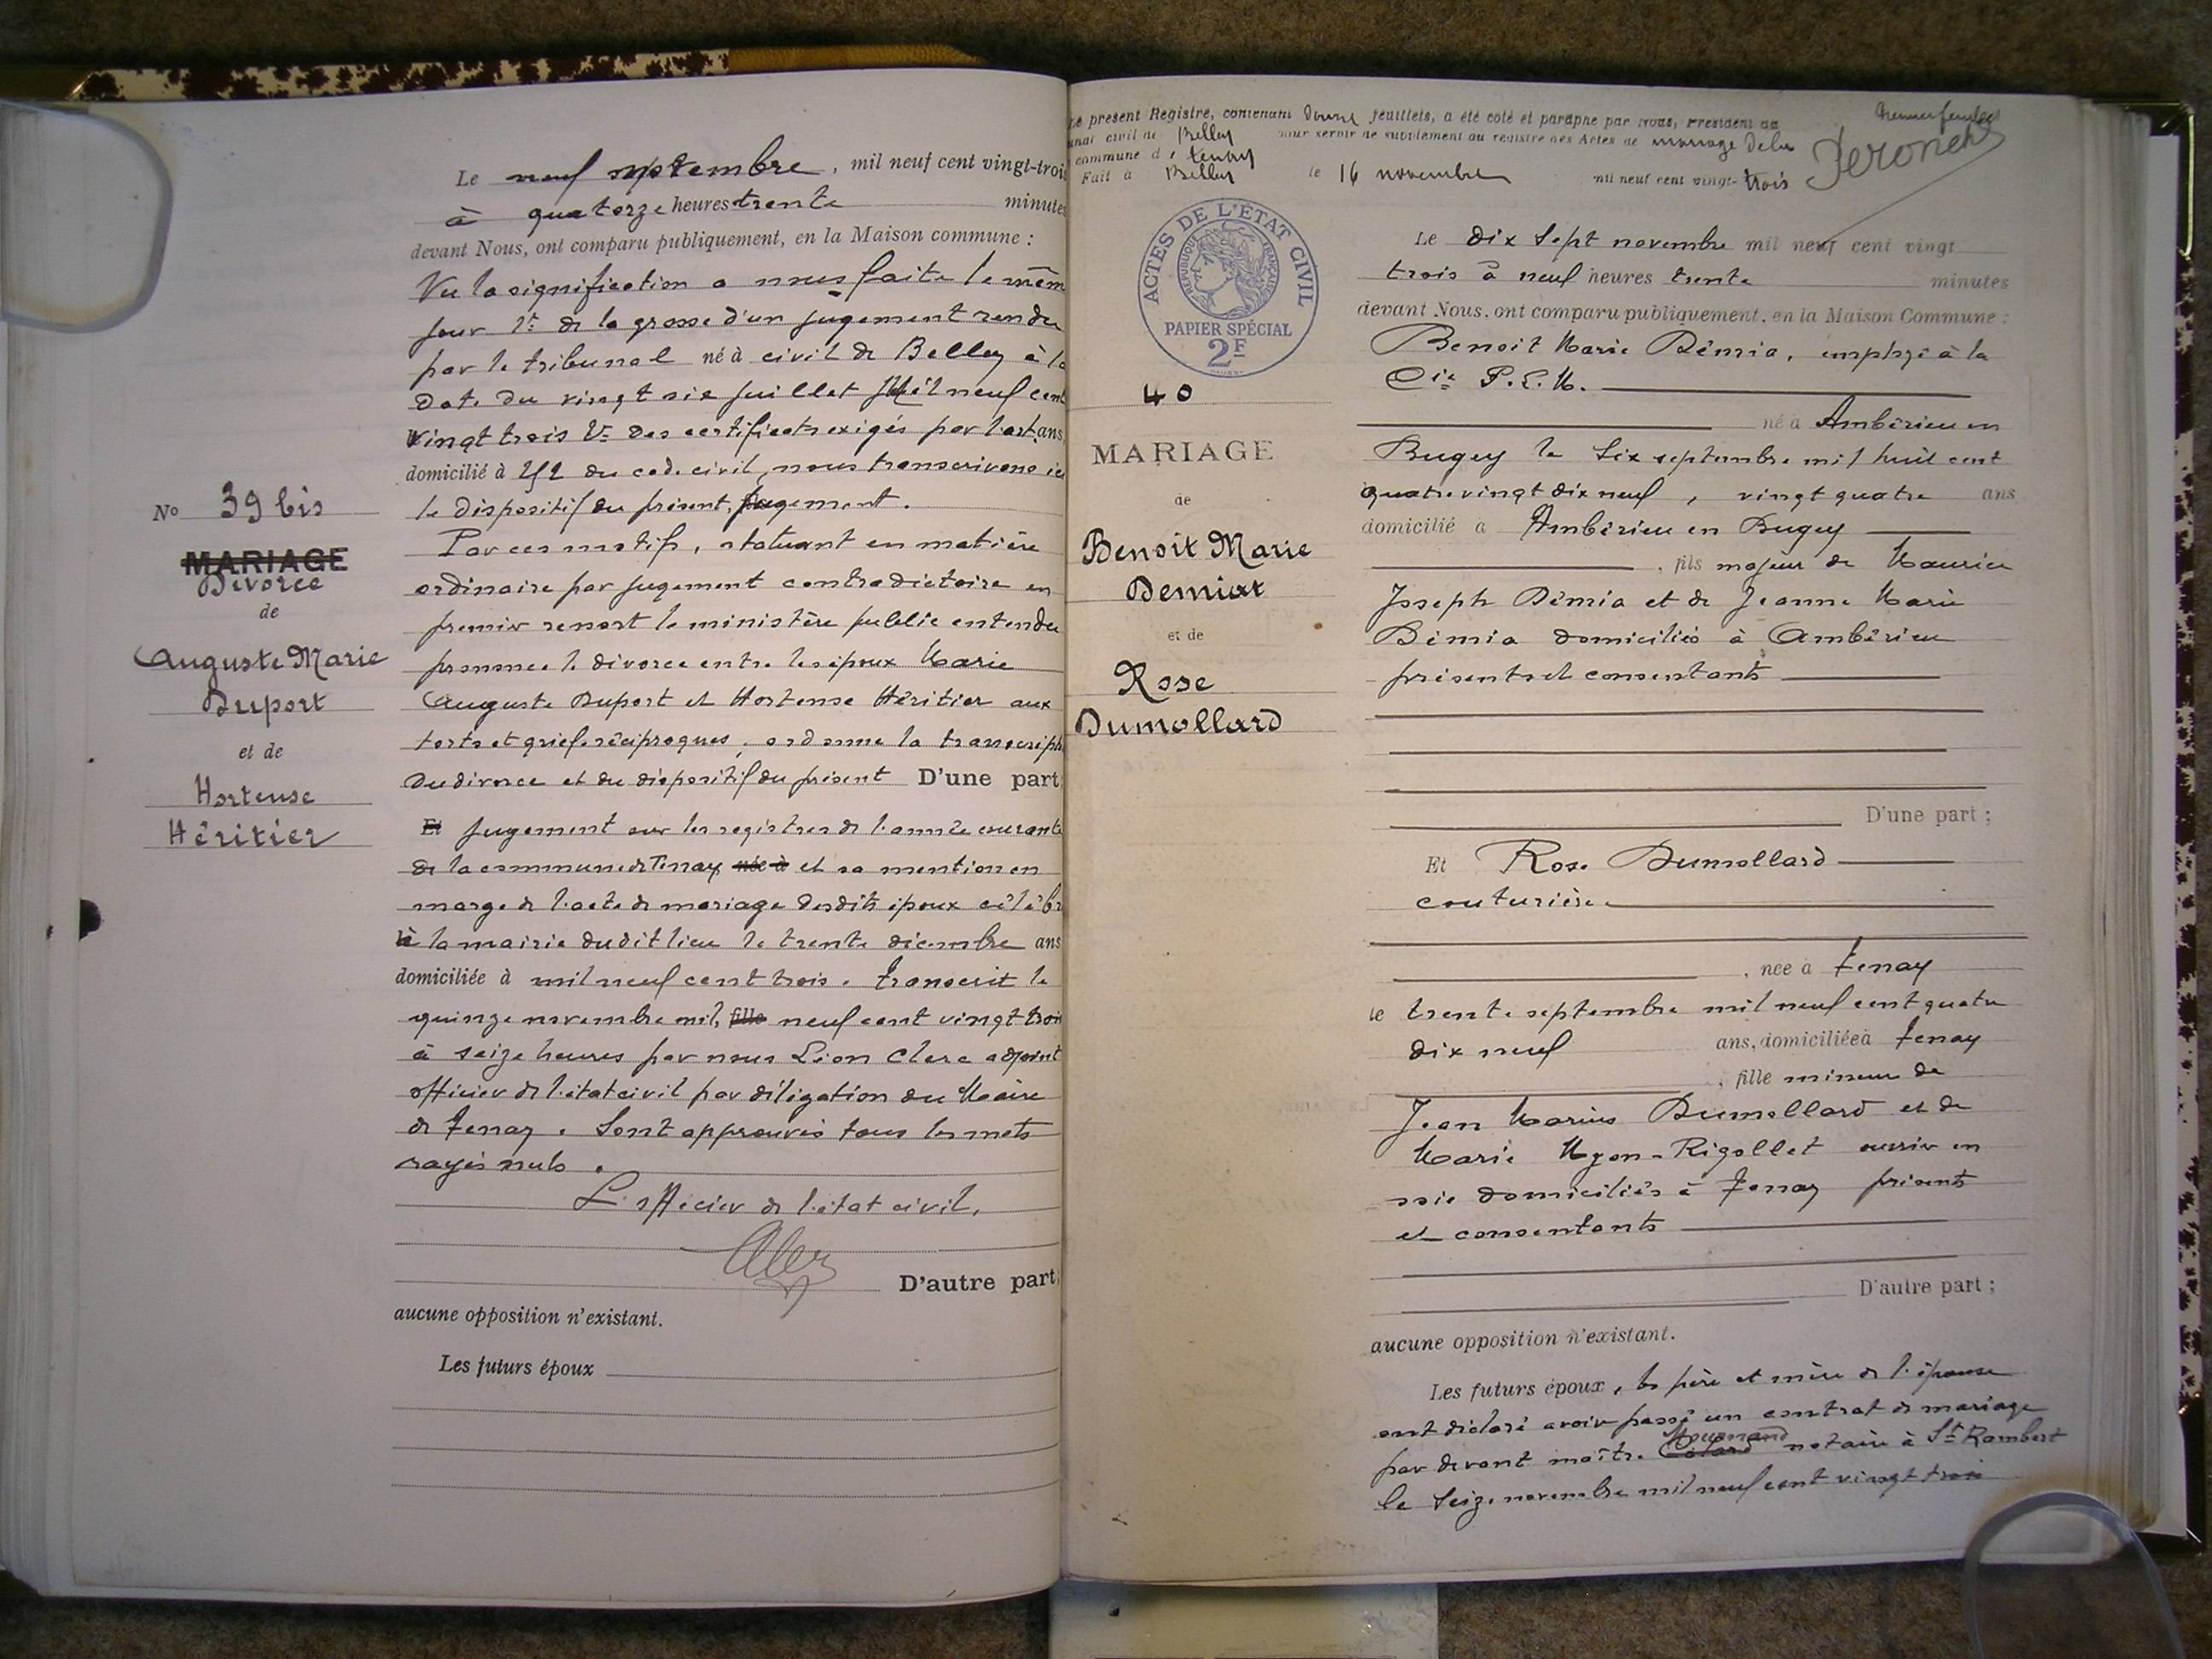 Le neuf septembre, mil neuf cent vingt-trois
à quatorze heures trente minutes
devant Nous, ont comparu publiquement, en la Maison commune :
Vu la signification a nous faite le mêm
jour 1t de la grosse d'un jugement rendu
par le tribunal né à civil de Belley à la
date du vingt six juillet mil neuf cent
vingt trois Vu des certificats exigés par l'art. ans,
domicilié à 252 du code civil, nous transcrivons ici
le dispositif du présent, jugement.
Par ces motifs, statuant en matière
ordinaire par jugement contradictoire en
premier ressort le ministère public entendu
prononce le divorce entre les époux Marie
Auguste Duport et Hortense Héritier aux
torts et griefs réciproques, ordonne la transcript
du divorce et du dispositif du présent D'une part
Et jugement sur les registres de l'année courante
de la commune de Tenay née à et sa mention en
marge de l'acte de mariage desdits époux célébr
à la mairie dudit lieu le trente décembre ans
domiciliée à mil neuf cent trois. Transcrit le
quinze novembre mil, fille neuf cent vingt trois
à seize heures par nous Léon Clerc adjoint
officier de l'état civil par délégation du Maire
de Tenay. Sont approuvés tous les mots
rayés nuls.
L'officier de l'état civil,
D'autre part;
aucune opposition n'existant.
Les futurs époux
No 39 bis
MARIAGE
Divorce
de
Auguste Marie
Duport
et de
Hortense
Héritier
Le présent Registre, contenant douze feuillets, a été coté et paraphé par Nous, Président du
unal civil de Belley pour servir de supplément au registre des Actes de mariage de la
commune de Tenay
Fait à Belley le 16 novembre mil neuf cent vingt-trois
ACTES DE L'ÉTAT CIVIL
RÉPUBLIQUE FRANÇAISE
PAPIER SPÉCIAL
2F
40
MARIAGE
de
Benoit Marie
Demiat
et de
Rose
Dumollard
Le dix sept novembre mil neuf cent vingt
trois à neuf heures trente minutes
devant Nous, ont comparu publiquement, en la Maison Commune :
Benoit Marie Démia, employé à la
Cie P.L.M.
né à Ambérieu en
Bugey le six septembre mil huit cent
quatre vingt dix neuf, vingt quatre ans
domicilié à Ambérieu en Bugey
, fils majeur de Maurice
Joseph Démia et de Jeanne Marie
Démia domiciliés à Ambérieu
présents et consentants
D'une part ;
Et Rose Dumollard
couturière
, née à Tenay
le trente septembre mil neuf cent quatre
dix neuf ans, domiciliée à Tenay
, fille mineure de
Jean Marius Dumollard et de
Marie Myon-Rigollet ouvrier en
soie domiciliés à Tenay présents
et consentants
D'autre part ;
aucune opposition n'existant.
Les futurs époux, les père et mère de l'épouse
ont déclaré avoir passé un contrat de mariage
par devant maître notaire à St Rambert
le seize novembre mil neuf cent vingt trois